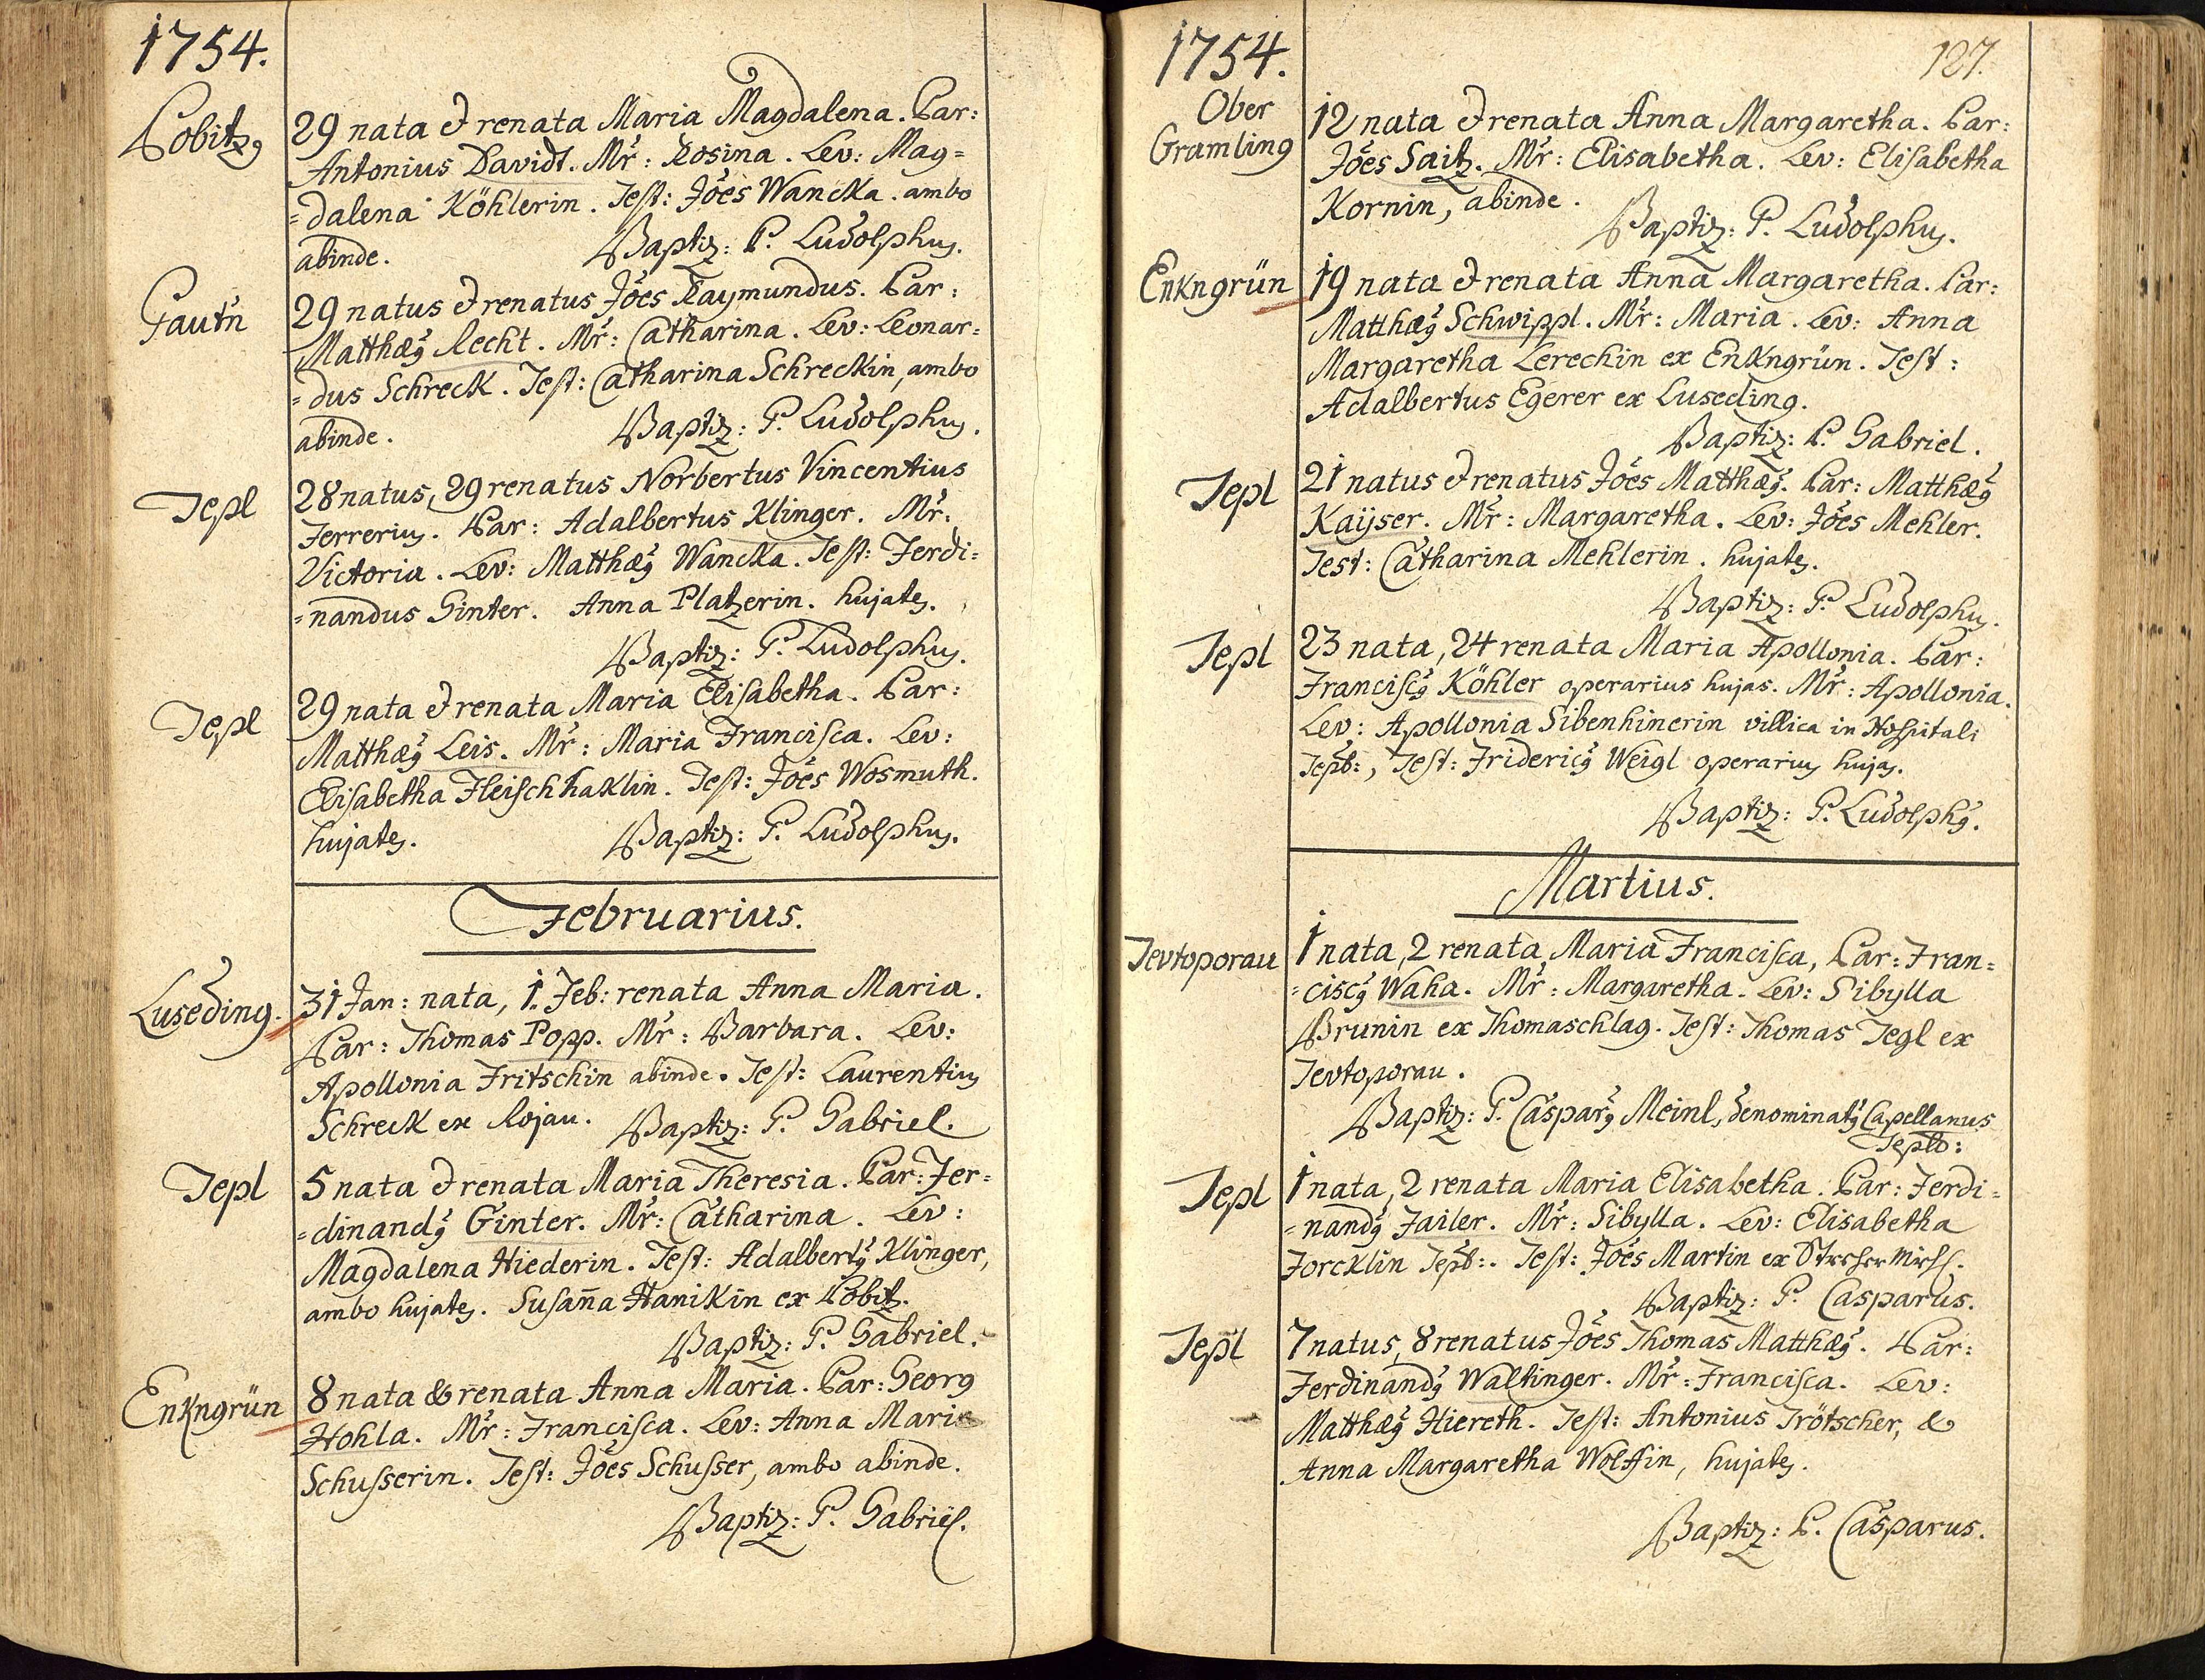 1754.
Pobitz
29 nata & renata Maria Magdalena. Par:
Antonius Davidt. Mr: Rosina. Lev: Mag=
=dalena Köhlerin. Test: Jões Wancka. ambo
abinde. Baptiz: P. Ludolphus.
Pautn
29 natus & renatus Jões Raymundus. Par:
Matthæus Recht. Mr: Catharina. Lev: Leonar=
=dus Schreck. Test: Catharina Schreckin, ambo
abinde. Baptiz: P. Ludolphus.
Tepl
28 natus, 29 renatus Norbertus Vincentius
Ferrerius. Par: Adalbertus Klinger. Mr.
Victoria. Lev: Matthæus Wancka. Test: Ferdi=
=nandus Ginter. Anna Platzerin. hujates.
Baptiz: P. Ludolphus.
Tepl
29 nata & renata Maria Elisabetha. Par:
Matthæus Leis. Mr: Maria Francisca. Lev:
Elisabetha Fleischhaklin. Test: Jões Wosmuth.
hujates. Baptiz: P. Ludolphus.
Februarius.
Luseding.
31 Jan: nata, 1. Feb: renata Anna Maria.
Par: Thomas Popp. Mr: Barbara. Lev:
Apollonia Fritschin abinde. Test: Laurentius
Schreck ex Rojau. Baptiz: P. Gabriel.
Tepl
5 nata & renata Maria Theresia. Par: Fer=
=dinandus Ginter. Mr: Catharina. Lev:
Magdalena Hiederin. Test: Adalbertus Klinger,
ambo hujates. Susañna Hanikin ex Pobitz.
Baptiz: P. Gabriel.
Enkngrün
8 nata & renata Anna Maria. Par: Georg
Hohla. Mr: Francisca. Lev: Anna Maria
Schusserin. Test: Jões Schusser, ambo abinde.
Baptiz: P. Gabriel.
1754.
127.
Ober
Gramling
12 nata & renata Anna Margaretha. Par:
Jões Saitz. Mr: Elisabetha. Lev: Elisabetha
Kornin, abinde.
Baptiz: P. Ludolphus.
Enkngrün
19 nata & renata Anna Margaretha. Par:
Matthæus Schwippl. Mr: Maria. Lev: Anna
Margaretha Lerechin ex Enkngrün. Test:
Adalbertus Egerer ex Luseding.
Baptiz: P. Gabriel.
Tepl
21 natus & renatus Jões Matthæus. Par: Matthæus
Kaÿser. Mr: Margaretha. Lev: Jões Mehler.
Test: Catharina Mehlerin. hujates.
Baptiz: P. Ludolphus.
Tepl
23 nata, 24 renata Maria Apollonia. Par:
Franciscus Köhler operarius hujas. Mr: Apollonia.
Lev: Apollonia Sibenhinerin villica in Hospitali
Tepl:, Test: Fridericus Weigl operarius hujas.
Baptiz: P. Ludolphus.
Martius.
Tevtoporau
1 nata, 2 renata Maria Francisca, Par: Fran=
=ciscus Waha. Mr: Margaretha. Lev: Sibylla
Brunin ex Thomaschlag. Test: Thomas Tegl ex
Tevtoporau.
Baptiz: P. Casparus Meinl, denominatus Capellanus
Tepl:
Tepl
1 nata, 2 renata Maria Elisabetha. Par: Ferdi=
=nandus Failer. Mr: Sibylla. Lev: Elisabetha
Forcklin Tepl:. Test: Jões Martin ex
Baptiz: P. Casparus.
Tepl
7 natus, 8 renatus Jões Thomas Matthæus. Par:
Ferdinandus Waltinger. Mr: Francisca. Lev:
Matthæus Hiereth. Test: Antonius Trötscher, &
Anna Margaretha Wolffin, hujates.
Baptiz: P. Casparus.